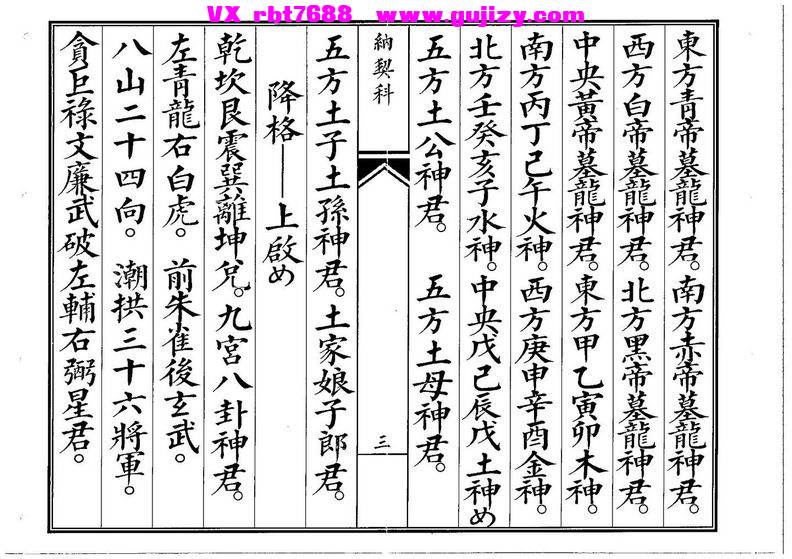 VX rbt7688 www.gujizy.com
東方青帝墓龍神君。南方赤帝墓龍神君。
西方白帝墓龍神君。北方黑帝墓龍神君。
中央黃帝墓龍神君。東方甲乙寅卯木神。
南方丙丁己午火神。西方庚申辛酉金神。
北方壬癸亥子水神。中央戊己辰戊土神め
五方土公神君。五方土母神君。
納契科
三
五方土子土孫神君。土家娘子郎君。
降格——上啟め
乾坎艮震巽離坤兌。九宮八卦神君。
左青龍右白虎。前朱雀後玄武。
八山二十四向。潮拱三十六將軍。
貪巨祿文廉武破左輔右弼星君。